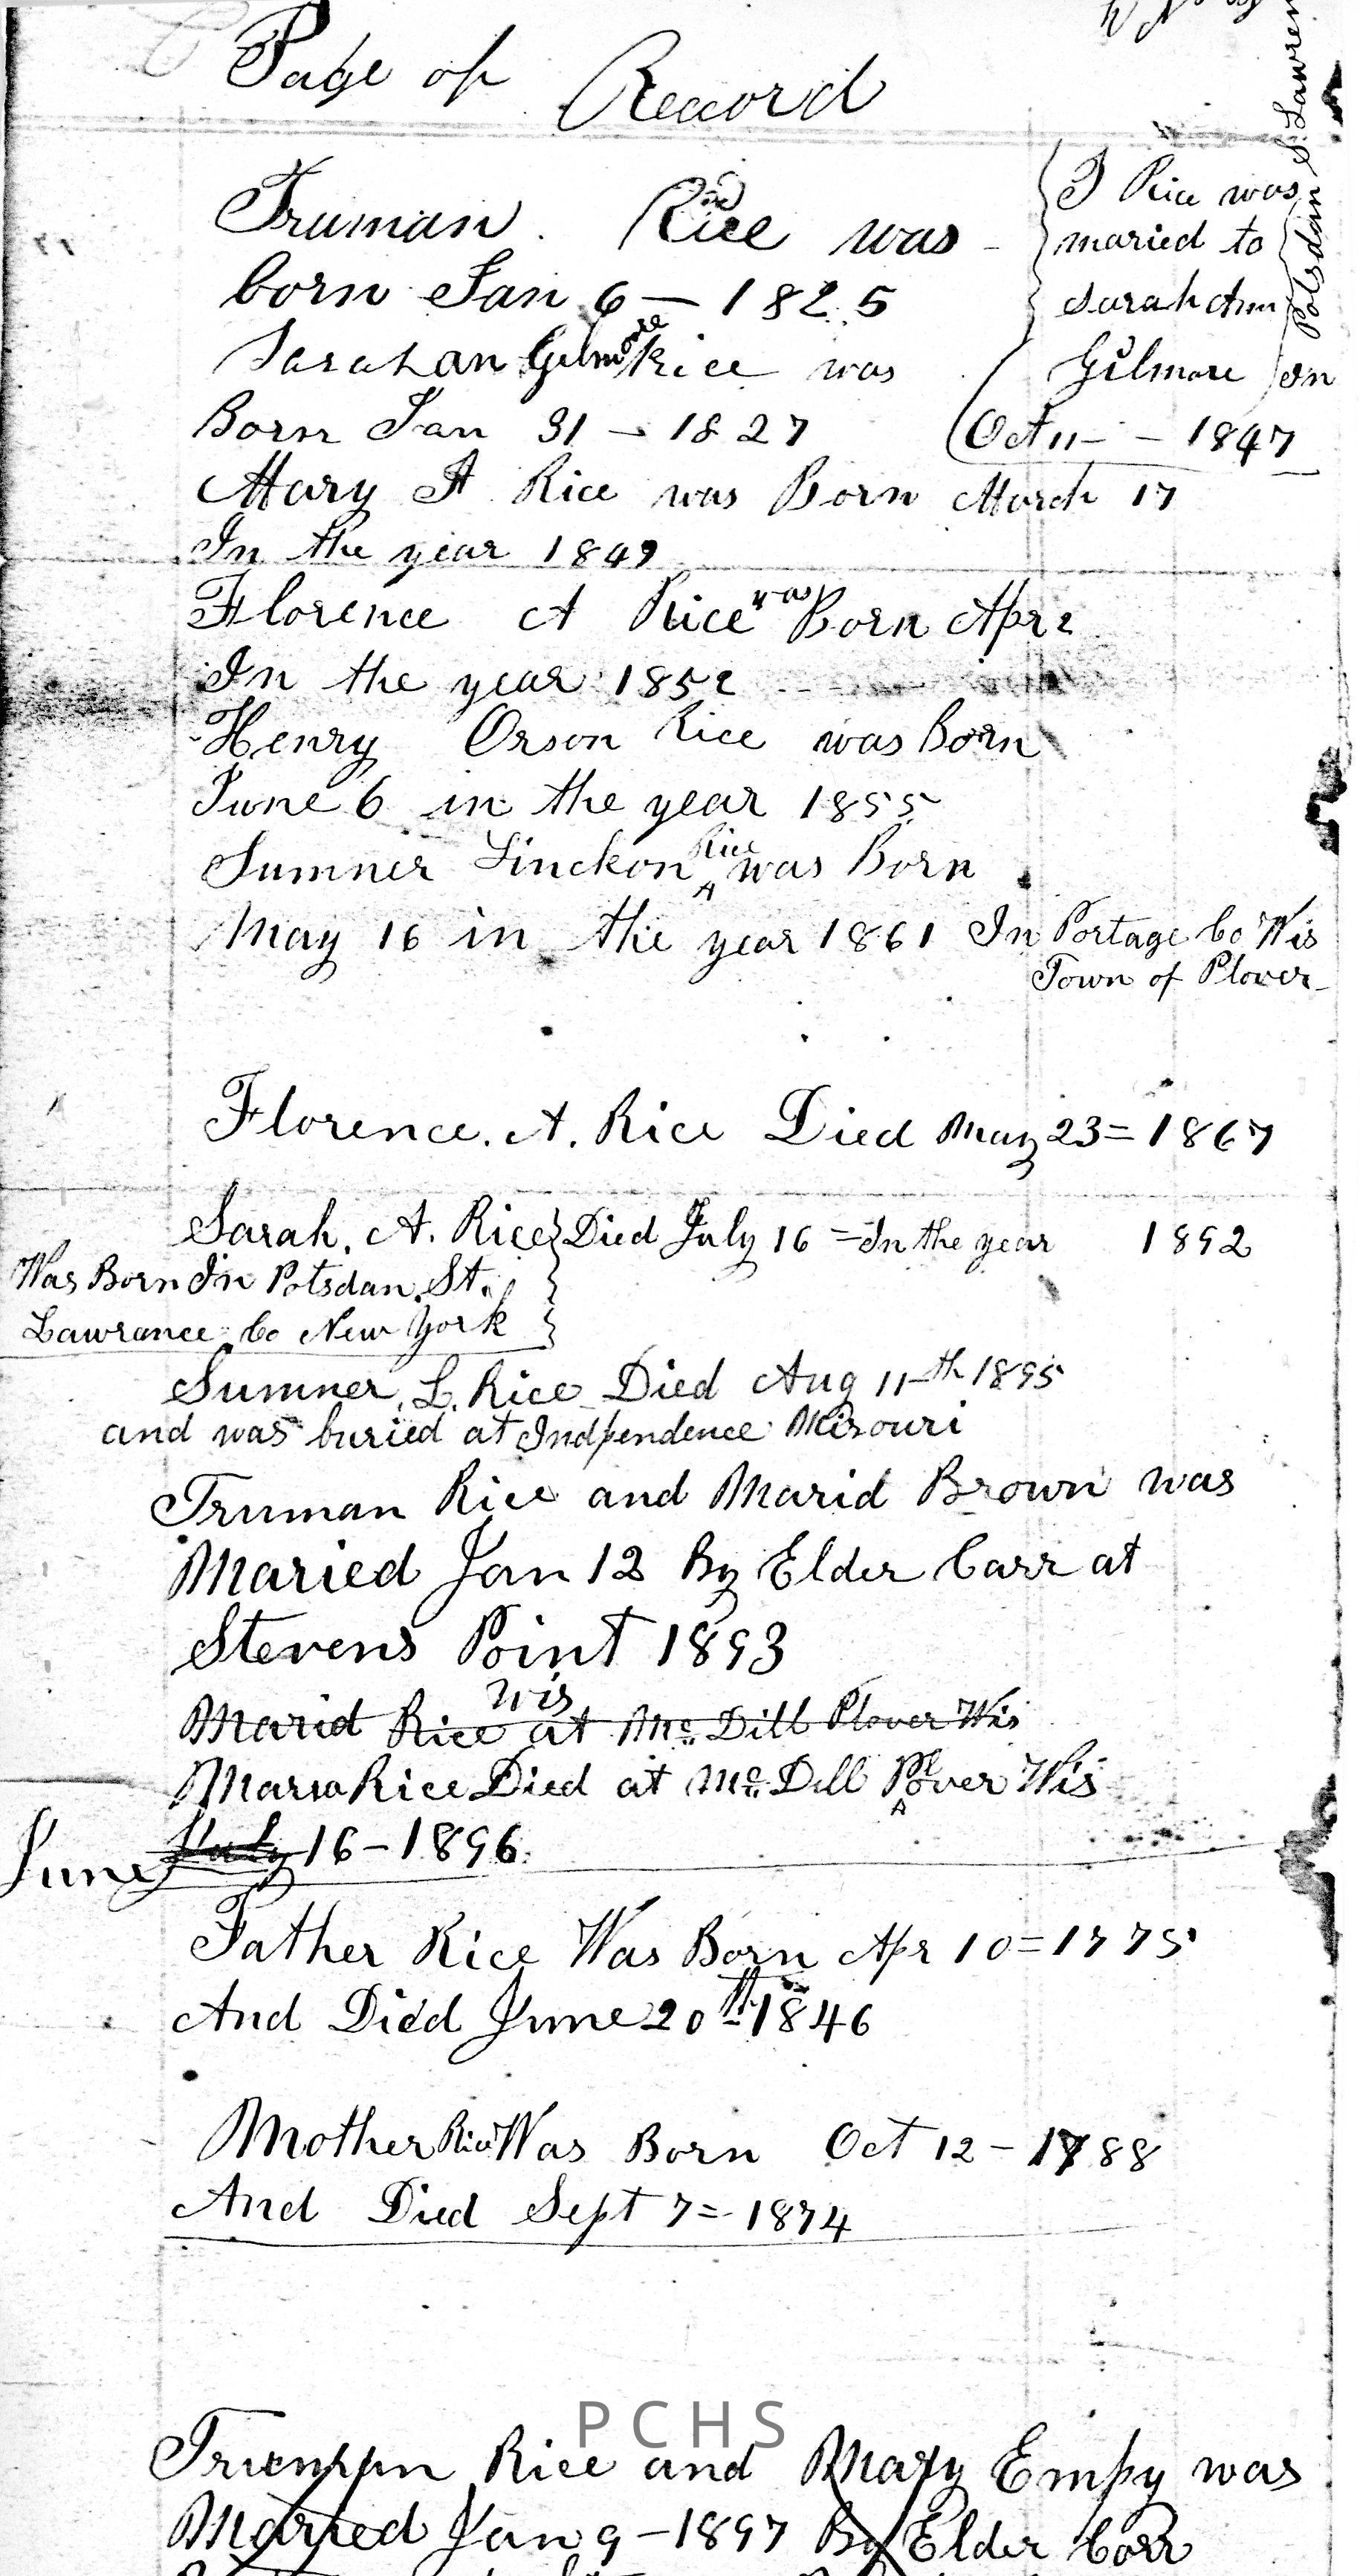 Page of Record
Truman Rice was
born Jan 6 — 1825
Sarah an Gilmore Rice was
Born Jan 31 — 1827
T Rice was
maried to
Sarah Ann
Gilmore in
Oct 11 — 1847
Potsdan S. Lawren
Mary A Rice was Born March 17
In the year 1849
Florence A Rice was Born Apr 2
In the year 1852
Henry Orson Rice was Born
June 6 in the year 1855
Sumner Linckon Rice was Born
May 16 in the year 1861 In Portage Co Wis
Town of Plover
Florence. A. Rice Died May 23 = 1867
Sarah. A. Rice Died July 16 = In the year 1892
Was Born In Potsdan. St.
Lawrance Co New York
Sumner. L. Rice Died Aug 11th 1895
and was buried at Indpendence Misouri
Truman Rice and Marid Brown was
Maried Jan 12 By Elder Carr at
Stevens Point 1893
Wis
Marid Rice at Mc Dill Plover Wis
Maria Rice Died at Mc Dill Plover Wis
June July 16 - 1896
Father Rice Was Born Apr 10 = 1775
And Died June 20th 1846
Mother Rice Was Born Oct 12 - 1788
And Died Sept 7 = 1874
PCHS
Truman Rice and Mary Empy was
Married Jan 9 - 1897 By Elder Carr